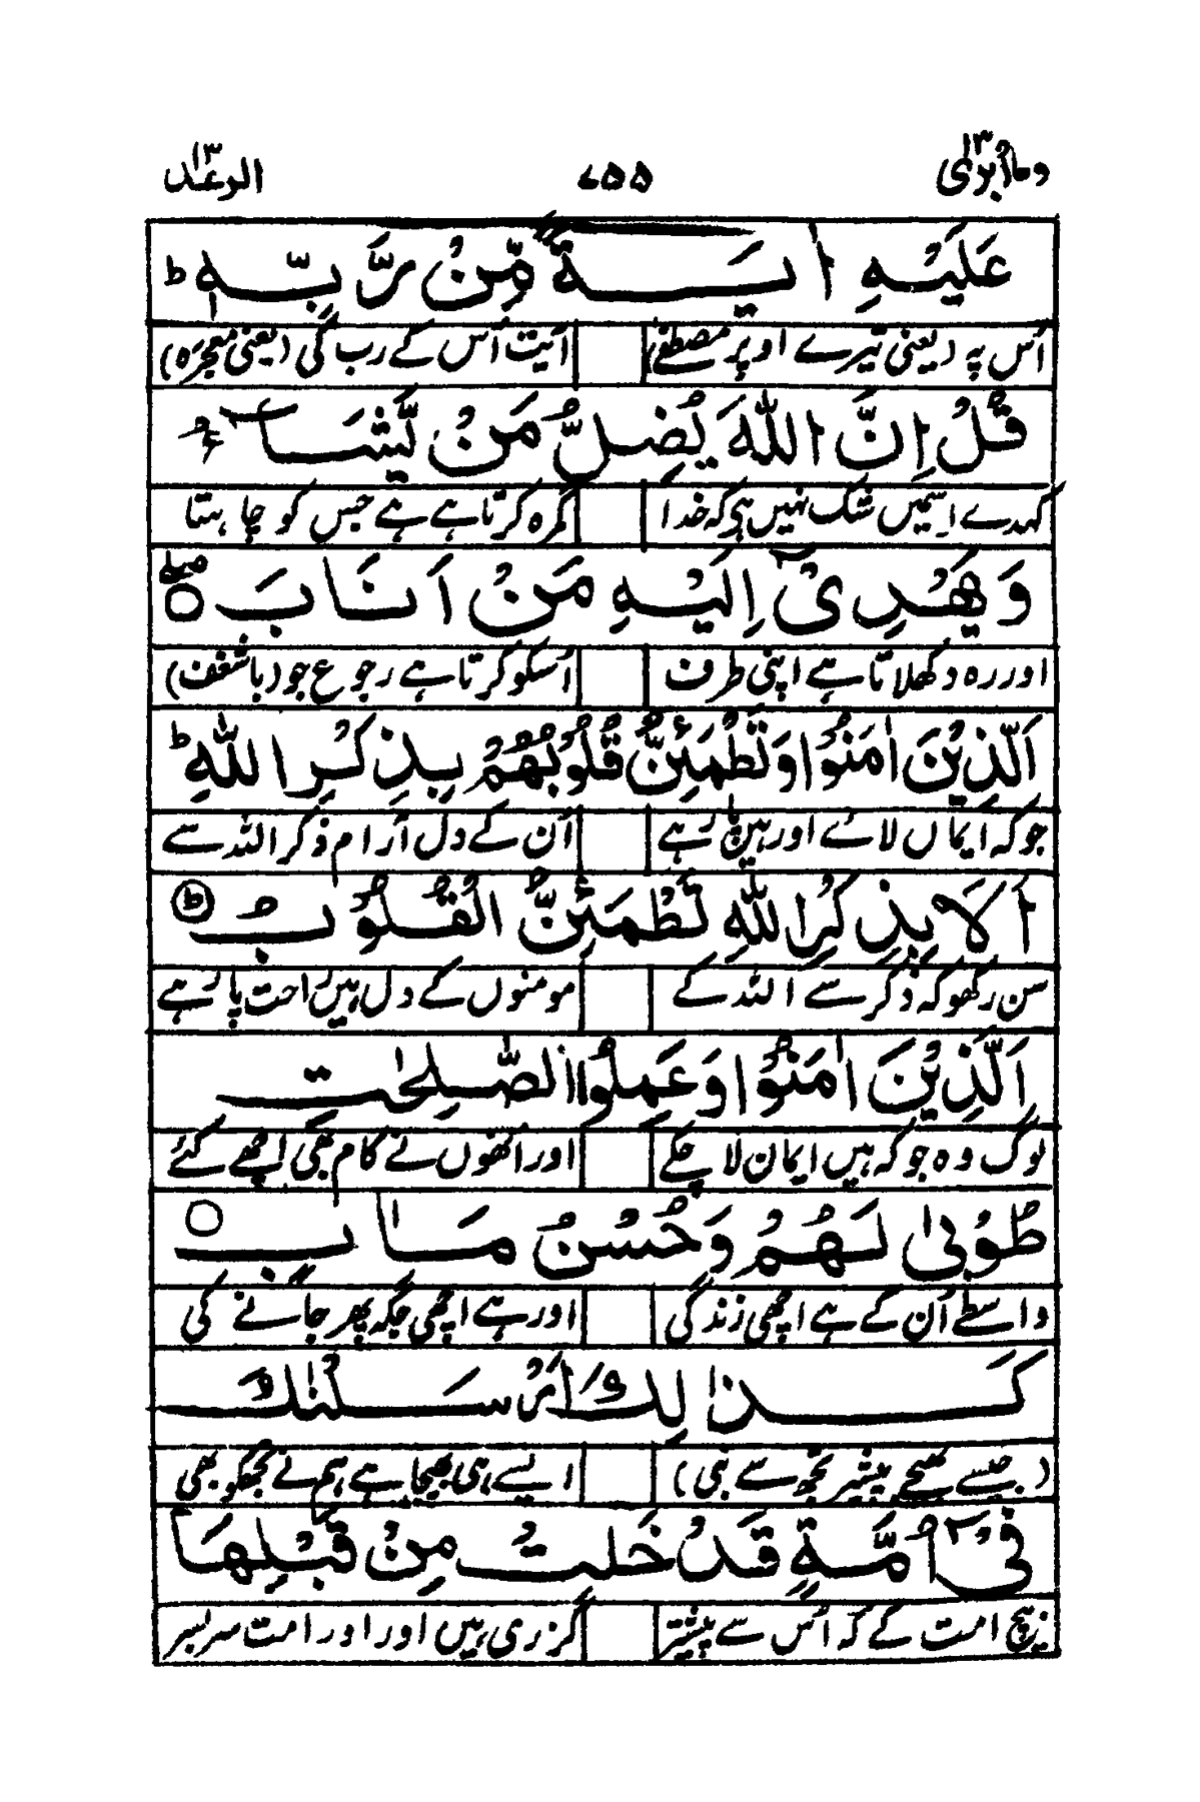 وما ابرئ ١٣ ٧٥٥ الرعد ١٣
عَلَيْهِ اٰيَةٌ مِّنْ رَّبِّهٖ ؕ
اُس پہ (یعنی تیرے اوپر مصطفٰی) آیت اُس کے رب کی (یعنی معجزہ)
قُلْ اِنَّ اللّٰهَ يُضِلُّ مَنْ يَّشَآءُ
کہدے اسمیں شک نہیں ہے کہ خدا گمرہ کرتا ہے ہے جس کو چاہتا
وَيَهْدِىْٓ اِلَيْهِ مَنْ اَنَابَ ۝ۖ
اور رہ دکھلاتا ہے اپنی طرف اُسکو کرتا ہے رجوع جو (با شغف)
اَلَّذِيْنَ اٰمَنُوْا وَتَطْمَئِنُّ قُلُوْبُهُمْ بِذِكْرِ اللّٰهِ ؕ
جو کہ ایماں لائے اور ہیں پا رہے اُن کے دل آرام ذکر اللہ سے
اَلَا بِذِكْرِ اللّٰهِ تَطْمَئِنُّ الْقُلُوْبُ ؕ
سن رکھو کہ ذکر سے اللہ کے مومنوں کے دل ہیں راحت پا رہے
اَلَّذِيْنَ اٰمَنُوْا وَعَمِلُوا الصّٰلِحٰتِ
لوگ وہ جو کہ ہیں ایمان لا چکے اور اُنھوں نے کام بھی اچھے کئے
طُوْبٰى لَهُمْ وَحُسْنُ مَاٰبٍ ۝
واسطے اُن کے ہے اچھی زندگی اور ہے اچھی جگہ پھر جانے کی
كَذٰلِكَ اَرْسَلْنٰكَ
(جیسے بھیجے پیشتر تجھ سے نبی) ایسے ہی بھیجا ہے ہم نے تجھکو بھی
فِىْٓ اُمَّةٍ قَدْ خَلَتْ مِنْ قَبْلِهَآ
بیچ امت کے کہ اُس سے پیشتر گزری ہیں اور اور امت سربسر